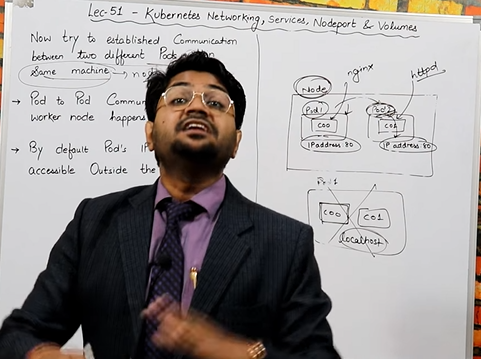 Lec-51 - Kubernetes Networking, Services, Nodeport & Volumes
Now try to established Communication
between two different Pods
Same machine → 
→ Pod to Pod
worker node happens
→ By default Pod's IP
accessible Outside the
nginx
httpd
Node
Pod1
Pod2
C00
C01
IP address 80
IP address 80
Pod1
C00
C01
localhost